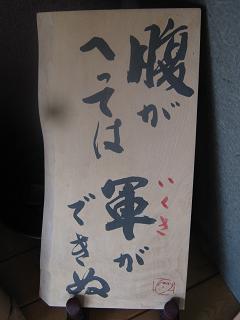 腹が
へっては
軍が
いくさ
できぬ